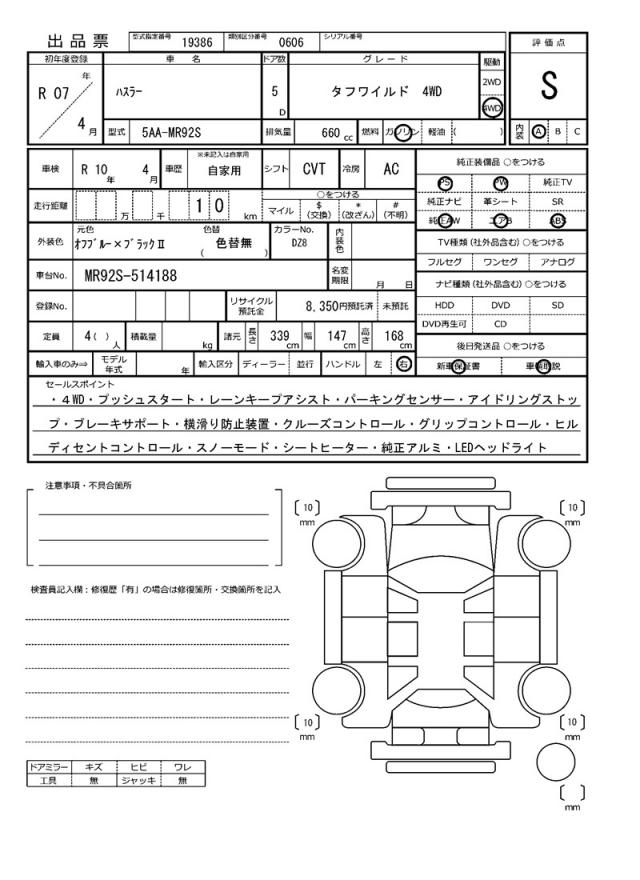 出品票 型式指定番号 19386 類別区分番号 0606 シリアル番号
評価点
S
初年度登録 車名 ドア数 グレード 駆動
R 07 年 4 月 ハスラー 5 D タフワイルド 4WD 2WD 4WD
型式 5AA-MR92S 排気量 660 cc 燃料 ガソリン 軽油 ( ) 内装 A B C
車検 R 10 年 4 月 車歴 ※未記入は自家用 自家用 シフト CVT 冷房 AC
走行距離 万 千 1 0 km ○をつける
マイル $ (交換) * (改ざん) # (不明)
外装色 元色 オフブルー×ブラックⅡ 色替 ( 色替無 ) カラーNo. DZ8 内装色
車台No. MR92S-514188 名変期限 月 日
登録No. リサイクル預託金 8,350円預託済 未預託
定員 4( ) 人 積載量 kg 諸元 長さ 339 cm 幅 147 cm 高さ 168 cm
輸入車のみ⇒ モデル年式 年 輸入区分 ディーラー 並行 ハンドル 左 右
純正装備品 ○をつける
PS PW 純正TV
純正ナビ 革シート SR
純正AW エアB ABS
TV種類 (社外品含む) ○をつける
フルセグ ワンセグ アナログ
ナビ種類 (社外品含む) ○をつける
HDD DVD SD
DVD再生可 CD
後日発送品 ○をつける
新車保証書 車輌取説
セールスポイント
・4WD・プッシュスタート・レーンキープアシスト・パーキングセンサー・アイドリングストッ
プ・ブレーキサポート・横滑り防止装置・クルーズコントロール・グリップコントロール・ヒル
ディセントコントロール・スノーモード・シートヒーター・純正アルミ・LEDヘッドライト
注意事項・不具合箇所
検査員記入欄：修復歴「有」の場合は修復箇所・交換箇所を記入
〔 10 〕 mm
〔 10 〕 mm
〔 10 〕 mm
〔 10 〕 mm
〔 〕 mm
ドアミラー キズ ヒビ ワレ
工具 無 ジャッキ 無